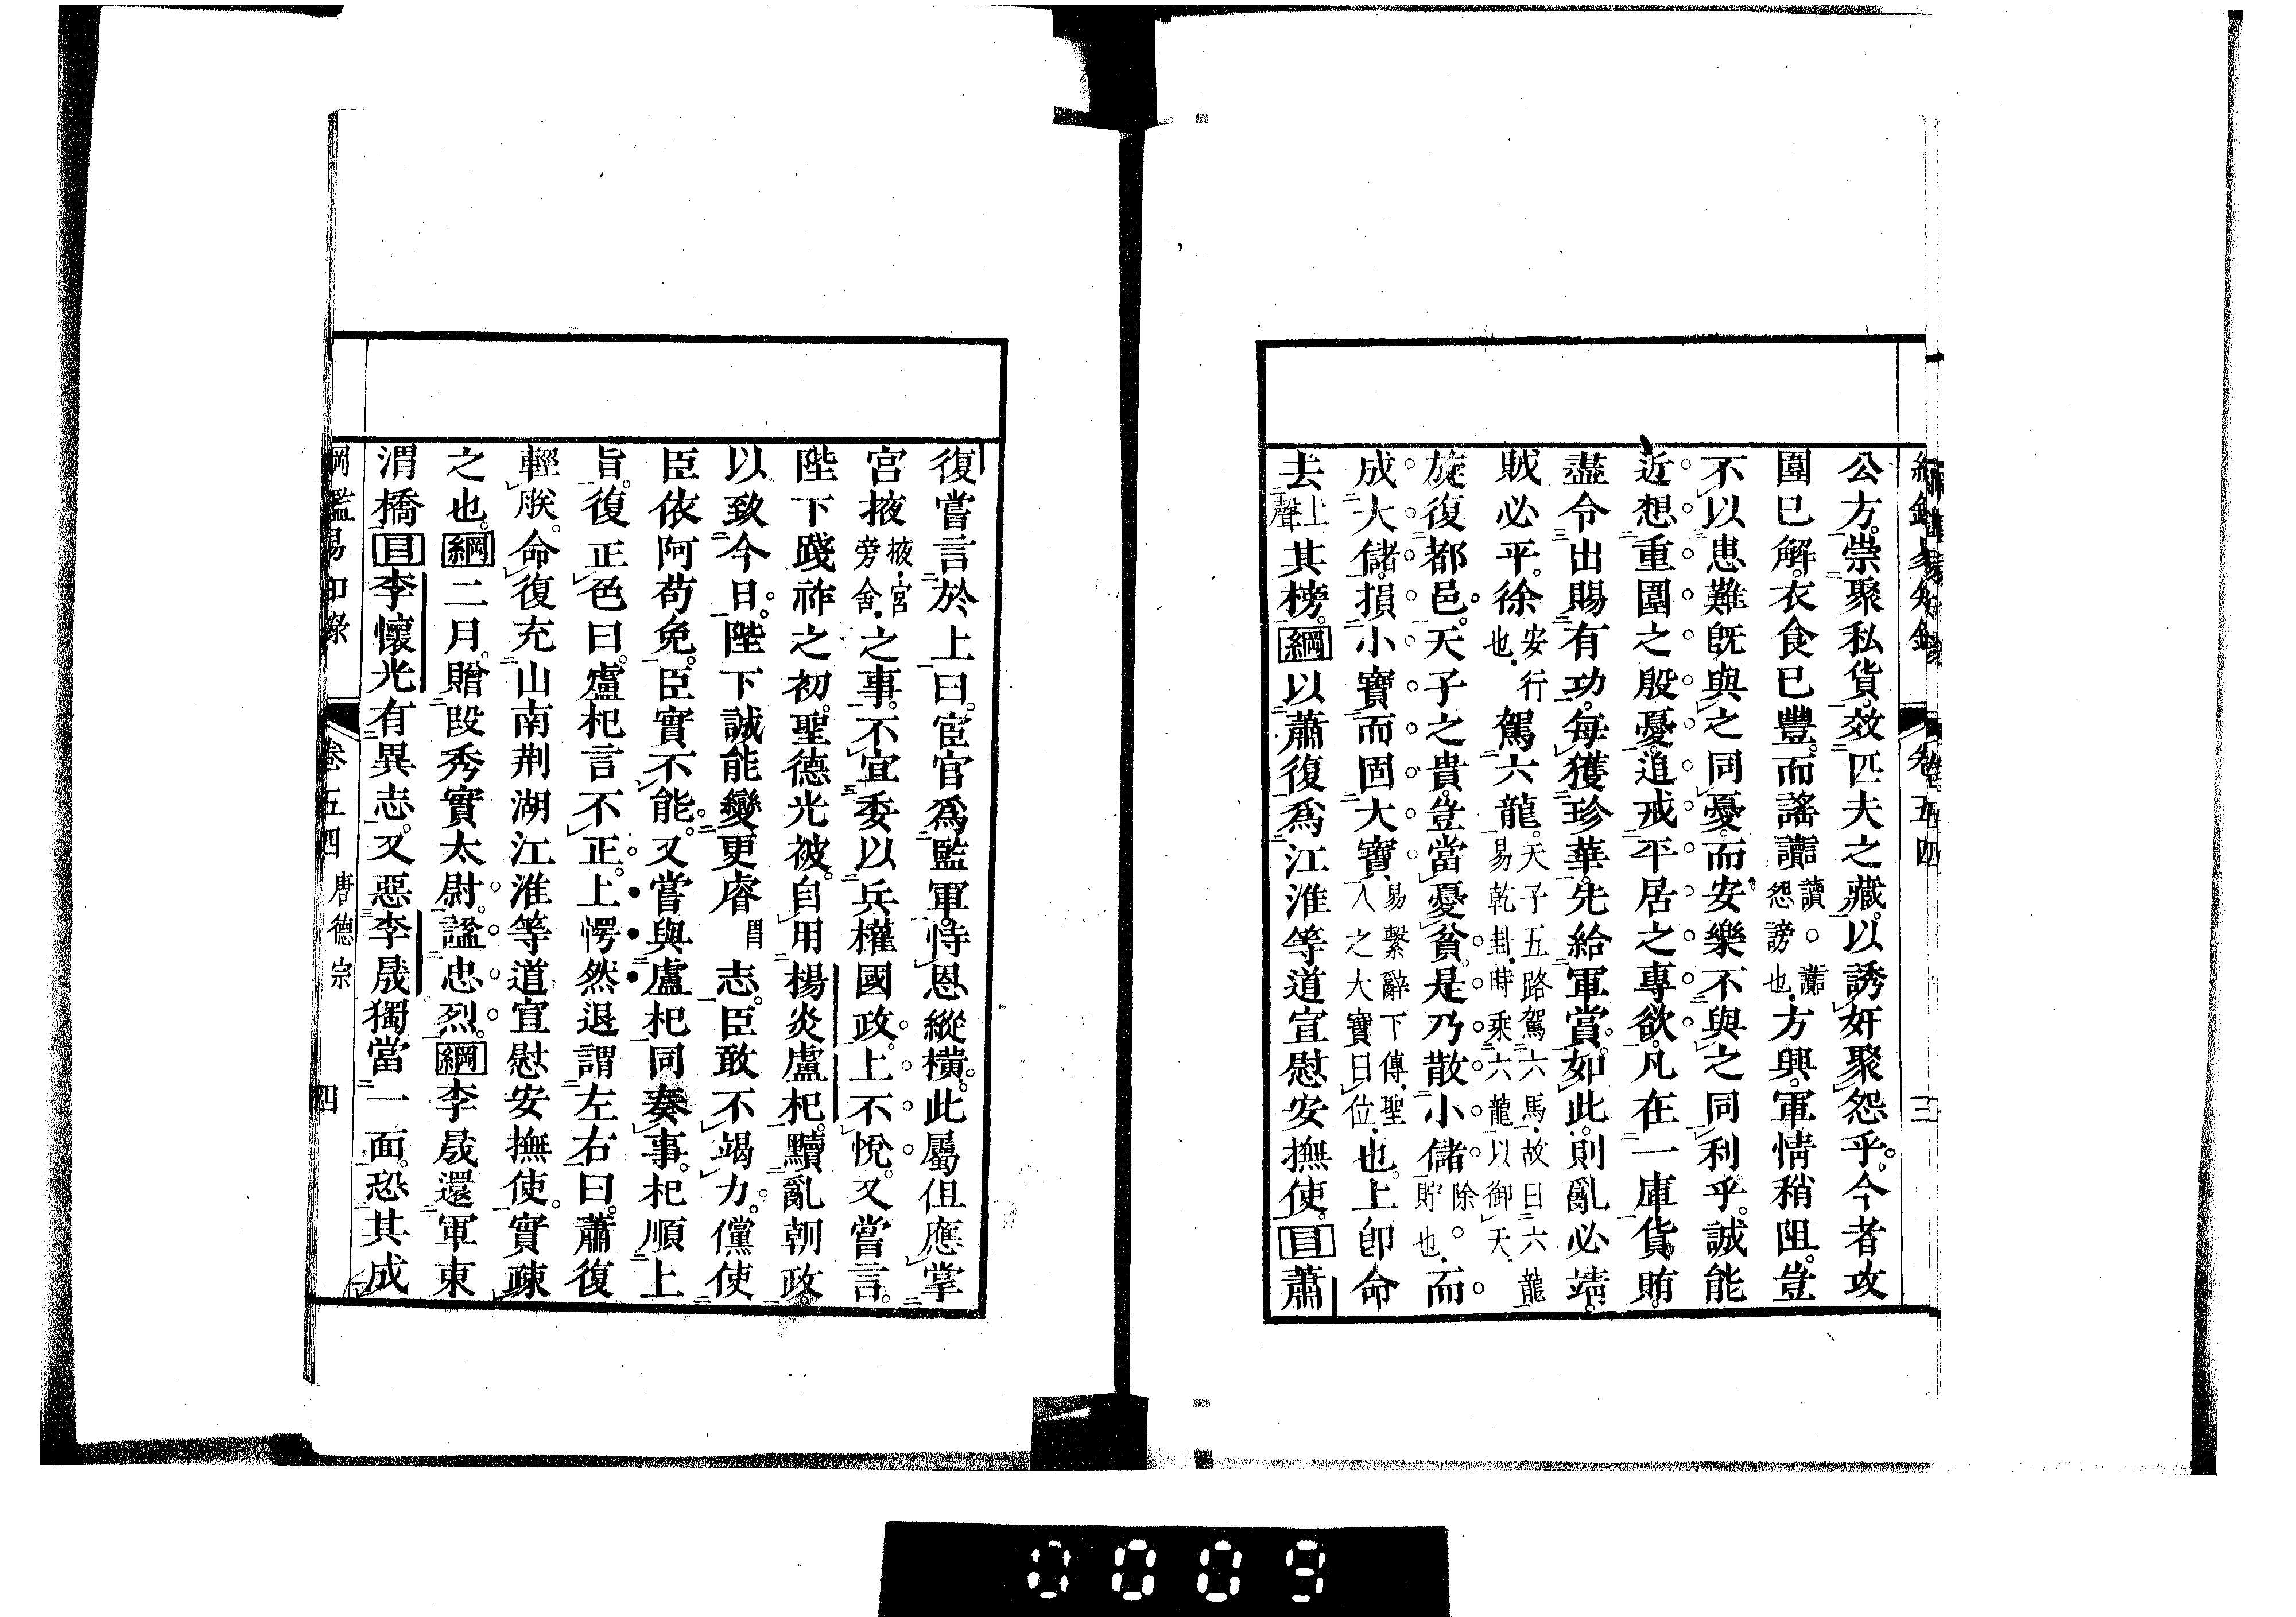 綱鑑易知錄 卷五四 三
公方。崇聚私貨。效匹夫之藏。以誘奸聚怨乎。今者攻
圍已解。衣食已豐。而謠讟讀。讟怨謗也。方興。軍情稍阻。豈
不以患難既與之同憂。而安樂不與之同利乎。誠能
近想重圍之殷憂。追戒平居之專欲。凡在一庫貨賄。
盡令出賜有功。每獲珍華。先給軍賞。如此。則亂必靖。
賊必平。徐安行也。駕六龍。天子五路駕六馬。故曰六龍易乾卦。時乘六龍以御天。
旋復都邑。天子之貴。豈當憂貧。是乃散小儲除。貯也。而
成大儲。損小寶而固大寶易繫辭下傳。聖人之大寶曰位。也。上卽命
去上聲其榜。綱以蕭復爲江淮等道宣慰安撫使。目蕭
復嘗言於上曰。宦官爲監軍。恃恩縱橫。此屬但應掌
宮掖掖。宮旁舍。之事。不宜委以兵權國政。上不悅。又嘗言。
陛下踐祚之初。聖德光被。自用楊炎盧杞。黷亂朝政。
以致今日。陛下誠能變更睿胃志。臣敢不竭力。儻使
臣依阿苟免。臣實不能。又嘗與盧杞同奏事。杞順上
旨。復正色曰。盧杞言不正。上愕然退謂左右曰。蕭復
輕朕。命復充山南荆湖江淮等道宣慰安撫使。實疎
之也。綱二月。贈段秀實太尉。諡忠烈。綱李晟還軍東
渭橋目李懷光有異志。又惡李晟獨當一面。恐其成
綱鑑易知錄 卷五四 唐德宗 四
0009